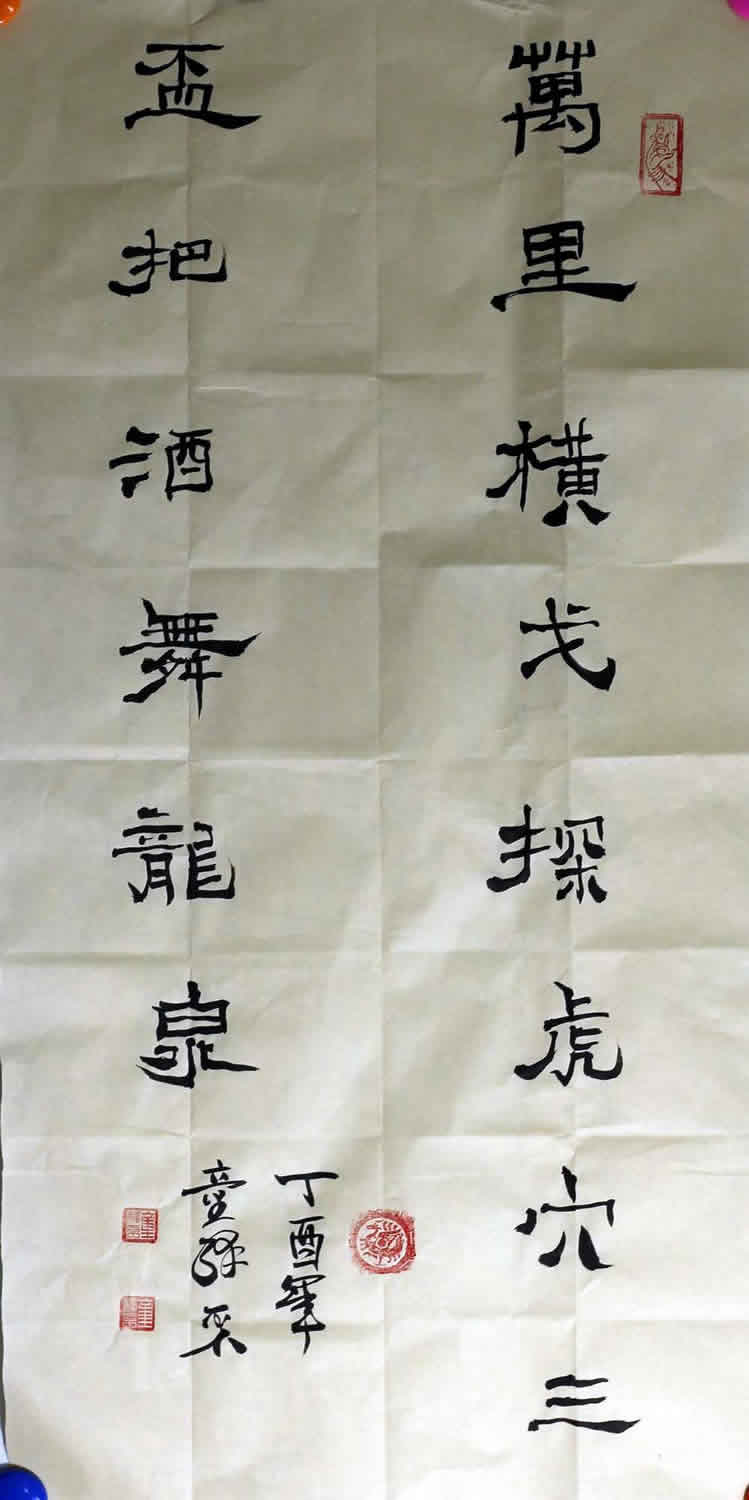 萬里橫戈探虎穴三
盃把酒舞龍泉
丁酉年
童